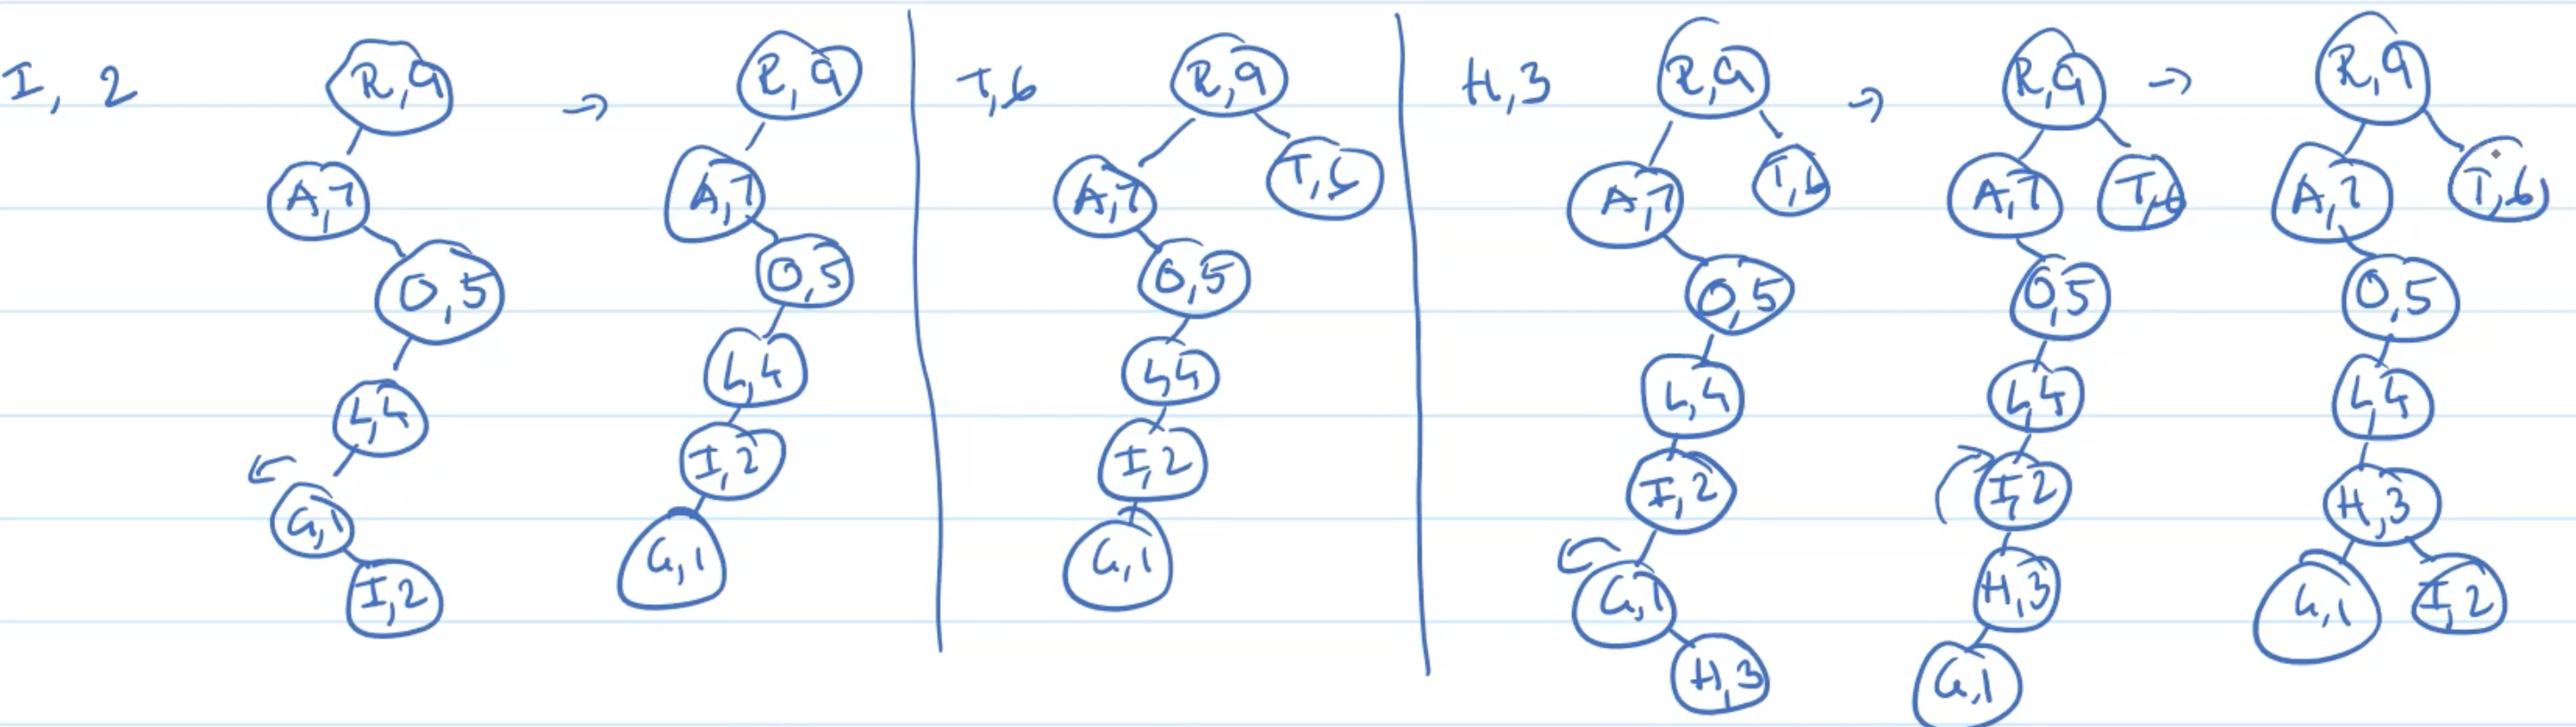 I, 2
R,9
A,7
O,5
L,4
G,1
I,2
→
R,9
A,7
O,5
L,4
I,2
G,1
T,6
R,9
A,7
T,6
O,5
L,4
I,2
G,1
H,3
R,9
A,7
T,6
O,5
L,4
I,2
G,1
H,3
→
R,9
A,7
T,6
O,5
L,4
I,2
H,3
G,1
→
R,9
A,7
T,6
O,5
L,4
H,3
G,1
I,2